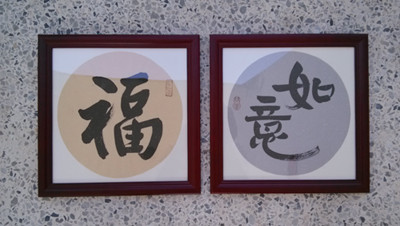 福
如
意